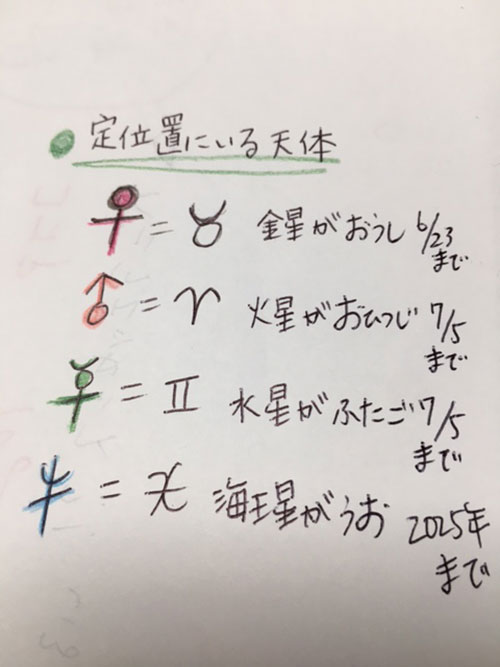 定位置にいる天体
♀=♉ 金星がおうし 6/23まで
♂=♈ 火星がおひつじ 7/5まで
☿=♊ 水星がふたご 7/5まで
♆=♓ 海王星がうお 2025年まで